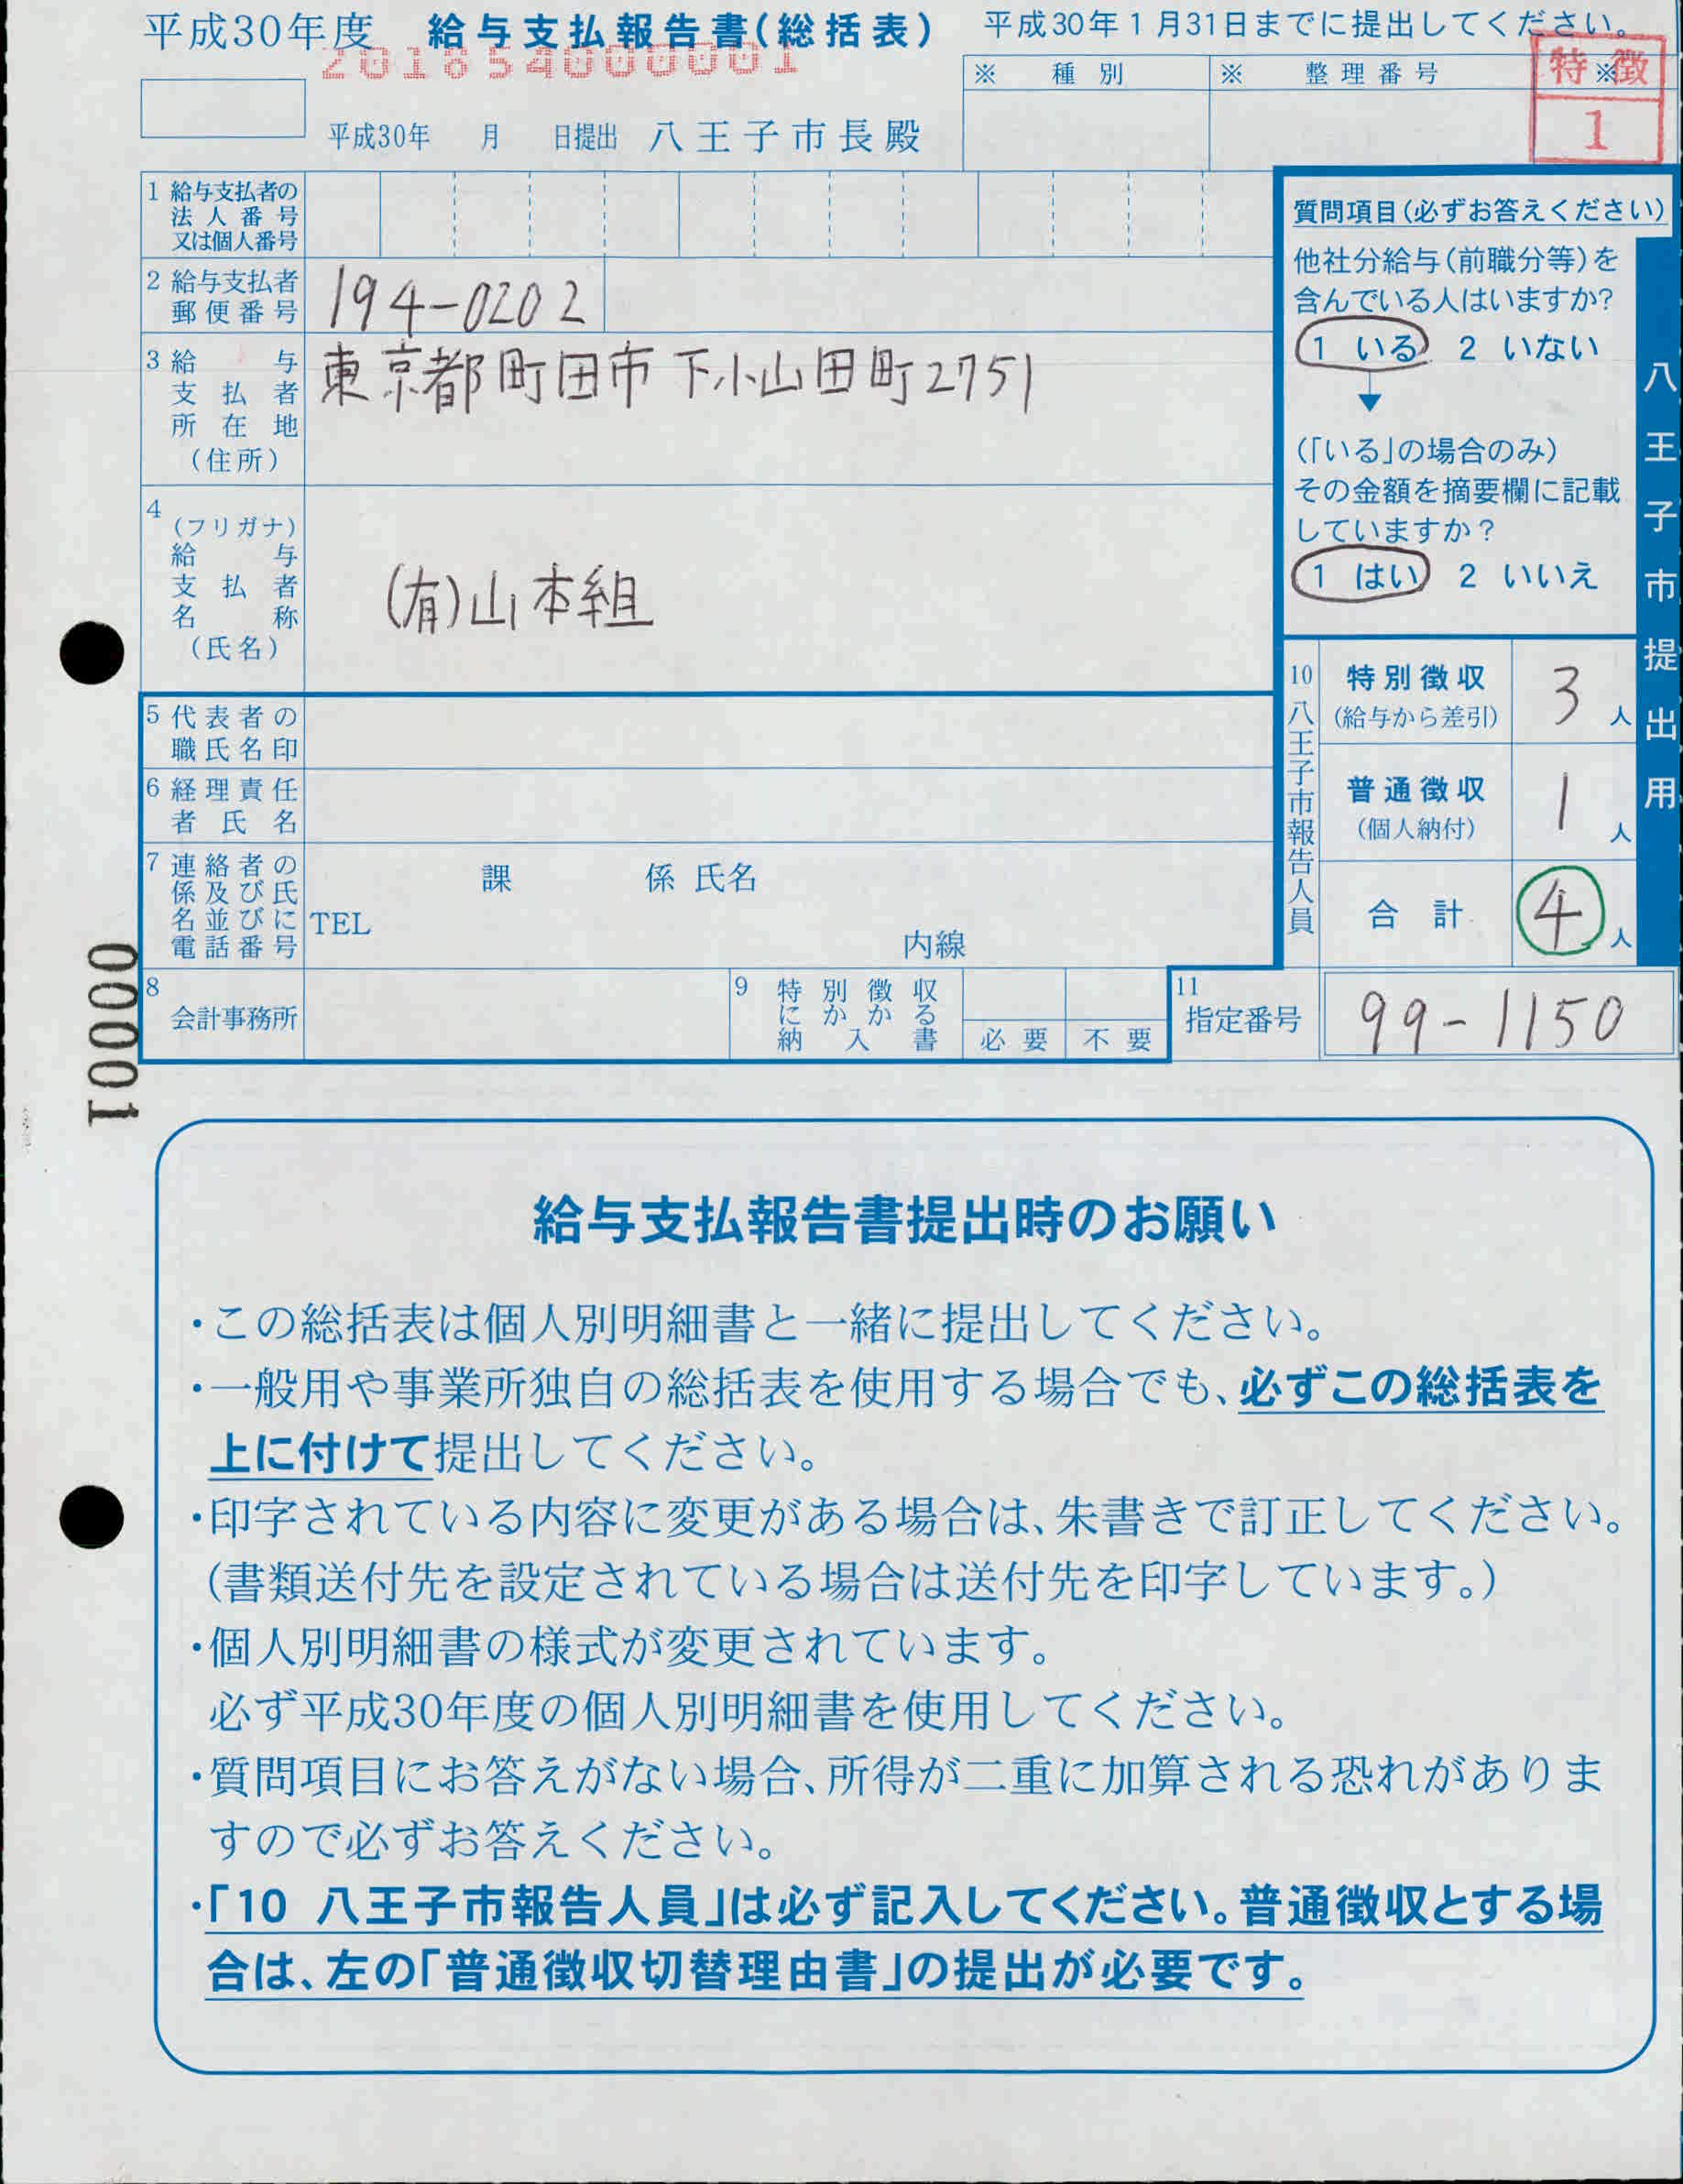 平成30年度 給与支払報告書(総括表) 平成30年1月31日までに提出してください。
201854000001
※ 種別 ※ 整理番号 ※
特徴
1
平成30年 月 日提出 八王子市長殿
1 給与支払者の
法人番号
又は個人番号
2 給与支払者
郵便番号
194-0202
3 給与
支払者
所在地
(住所)
東京都町田市下小山田町2751
4
(フリガナ)
給与
支払者
名称
(氏名)
(有)山本組
5 代表者の
職氏名印
6 経理責任
者氏名
7 連絡者の
係及び氏
名並びに
電話番号
課 係 氏名
TEL
内線
8
会計事務所
9 特別徴収
にかかる
納入書
必要 不要
質問項目(必ずお答えください)
他社分給与(前職分等)を
含んでいる人はいますか?
1 いる 2 いない
(「いる」の場合のみ)
その金額を摘要欄に記載
していますか?
1 はい 2 いいえ
八王子市提出用
10 八王子市報告人員
特別徴収
(給与から差引)
3人
普通徴収
(個人納付)
1人
合計
4人
11
指定番号
99-1150
00001
給与支払報告書提出時のお願い
・この総括表は個人別明細書と一緒に提出してください。
・一般用や事業所独自の総括表を使用する場合でも、必ずこの総括表を
上に付けて提出してください。
・印字されている内容に変更がある場合は、朱書きで訂正してください。
(書類送付先を設定されている場合は送付先を印字しています。)
・個人別明細書の様式が変更されています。
必ず平成30年度の個人別明細書を使用してください。
・質問項目にお答えがない場合、所得が二重に加算される恐れがありま
すので必ずお答えください。
・「10 八王子市報告人員」は必ず記入してください。普通徴収とする場
合は、左の「普通徴収切替理由書」の提出が必要です。